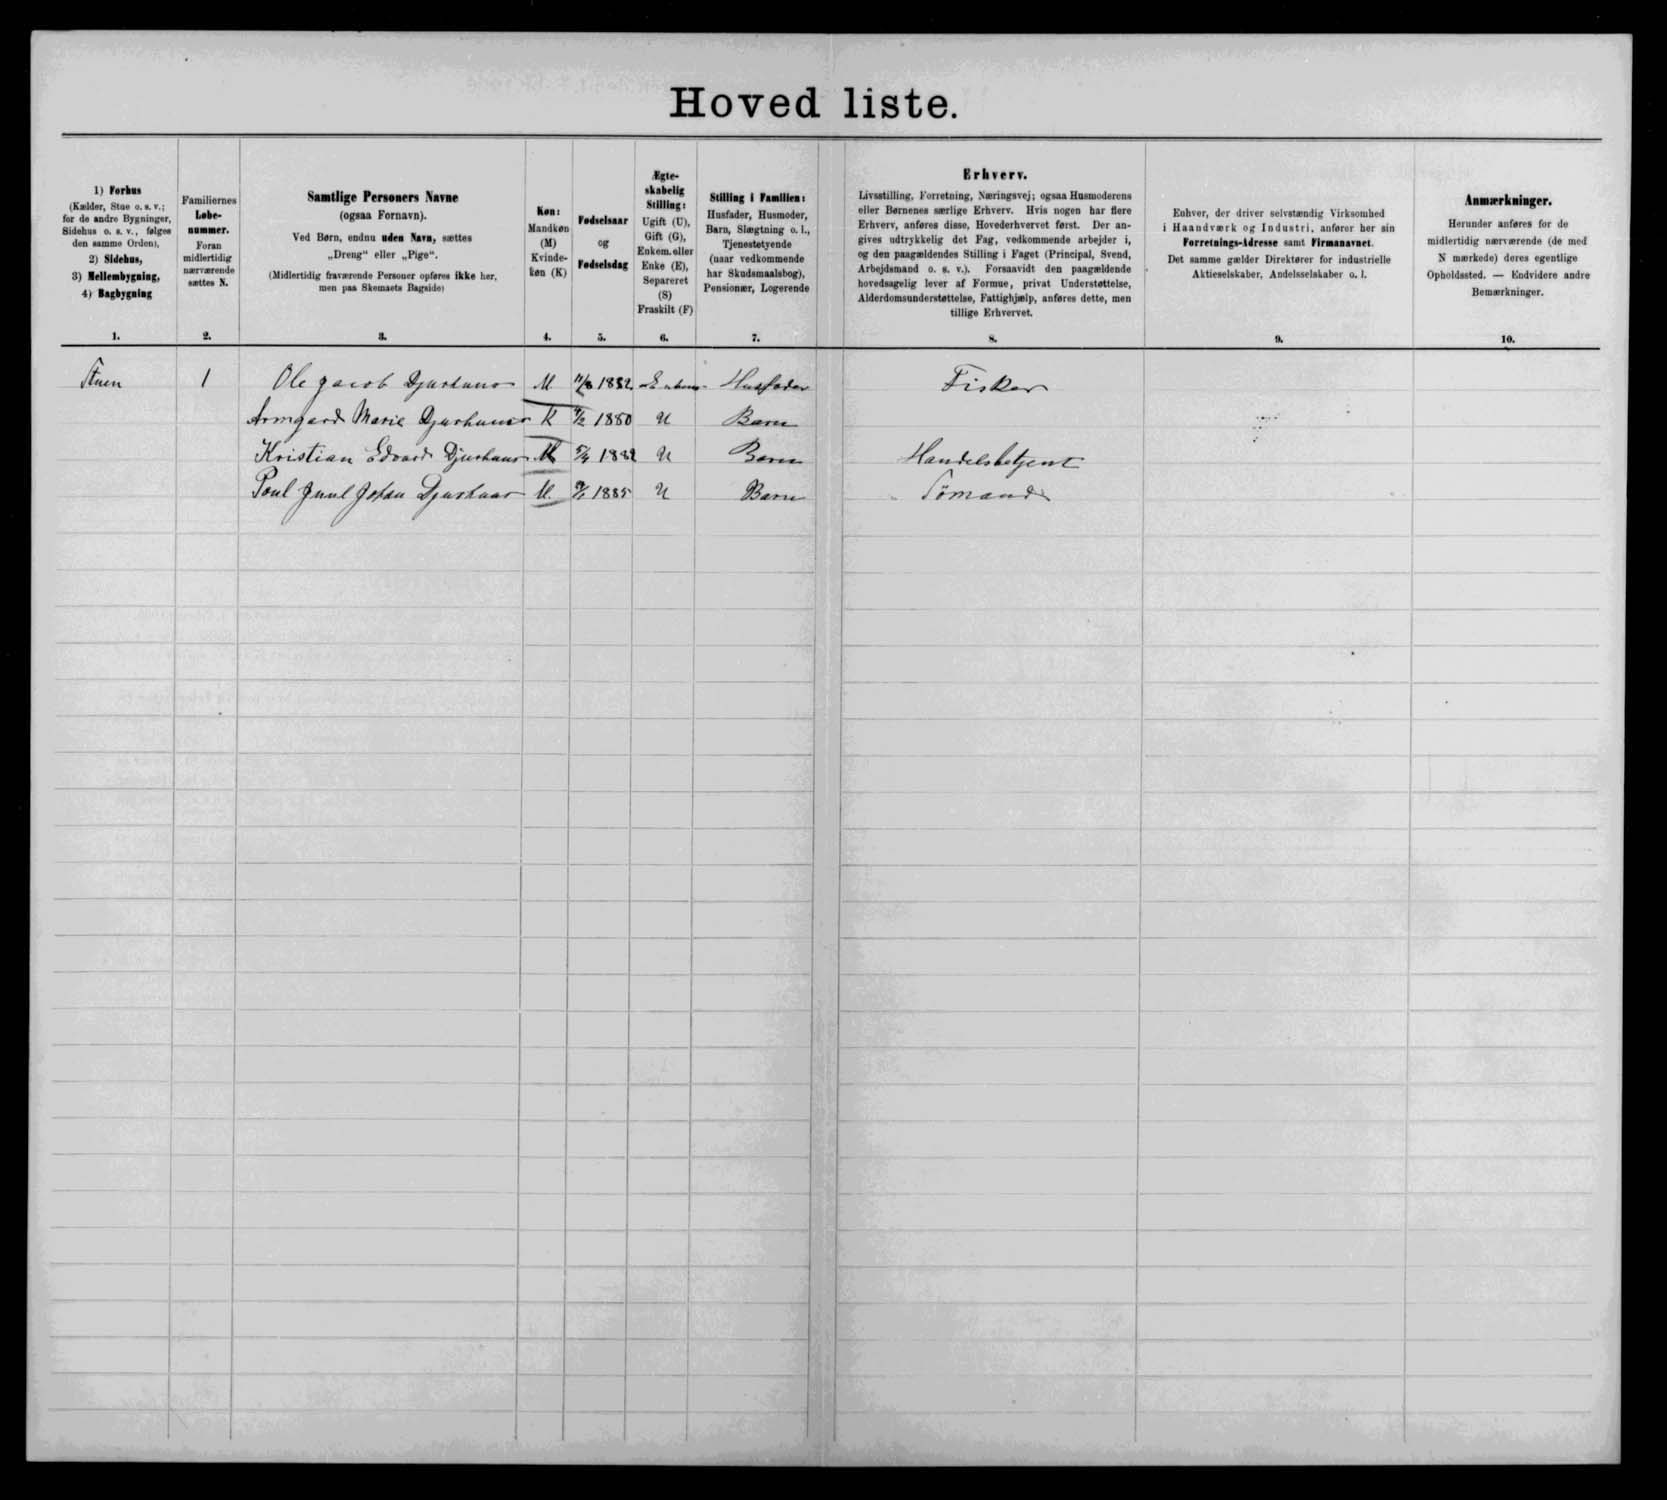 Hoved liste.
1) Forhus
(Kælder, Stue o. s. v.;
for de andre Bygninger,
Sidehus o. s. v., følges
den samme Orden),
2) Sidehus,
3) Mellembygning,
4) Bagbygning
1.
Familiernes
Løbe-
nummer.
Foran
midlertidig
nærværende
sættes N.
2.
Samtlige Personers Navne
(ogsaa Fornavn).
Ved Børn, endnu uden Navn, sættes
„Dreng“ eller „Pige“.
(Midlertidig fraværende Personer opføres ikke her,
men paa Skemaets Bagside)
3.
Køn:
Mandkøn
(M)
Kvinde-
køn (K)
4.
Fødselsaar
og
Fødselsdag
5.
Ægte-
skabelig
Stilling:
Ugift (U),
Gift (G),
Enkem. eller
Enke (E),
Separeret
(S)
Fraskilt (F)
6.
Stilling i Familien:
Husfader, Husmoder,
Barn, Slægtning o. l.,
Tjenestetyende
(naar vedkommende
har Skudsmaalsbog),
Pensionær, Logerende
7.
Erhverv.
Livsstilling, Forretning, Næringsvej; ogsaa Husmoderens
eller Børnenes særlige Erhverv. Hvis nogen har flere
Erhverv, anføres disse, Hovederhvervet først. Der an-
gives udtrykkelig det Fag, vedkommende arbejder i,
og den paagældendes Stilling i Faget (Principal, Svend,
Arbejdsmand o. s. v.). Forsaavidt den paagældende
hovedsagelig lever af Formue, privat Understøttelse,
Alderdomsunderstøttelse, Fattighjælp, anføres dette, men
tillige Erhvervet.
8.
Enhver, der driver selvstændig Virksomhed
i Haandværk og Industri, anfører her sin
Forretnings-Adresse samt Firmanavnet.
Det samme gælder Direktører for industrielle
Aktieselskaber, Andelsselskaber o. l.
9.
Anmærkninger.
Herunder anføres for de
midlertidig nærværende (de med
N mærkede) deres egentlige
Opholdssted. — Endvidere andre
Bemærkninger.
10.
Stuen 1 Ole Jacob Djurhuus M 11/8 Husfader Fisker
Armgard Marie Djurhuus K 1880 U Barn
Kristian Edvard Djurhuus M 1882 U Barn Handelsbetjent
Poul Juul Johan Djurhuus M. 1885 U Barn Sömand